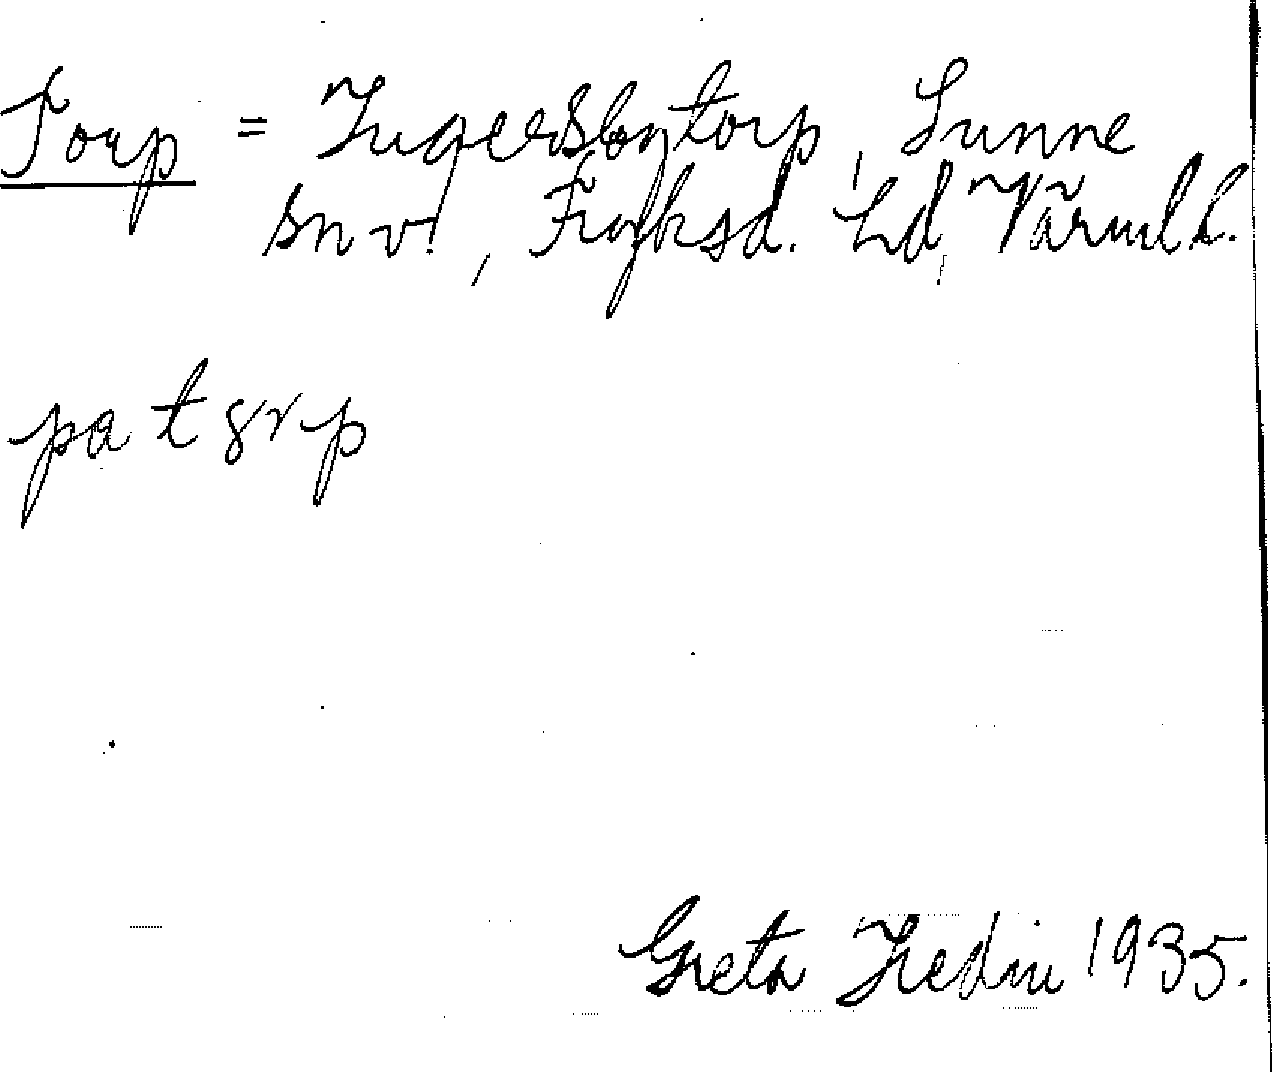 Torp = Ingersbytorp, Sunne
snv., Fryksd. hd, Värml l.
pa tɔrp
Greta Hedin 1935.